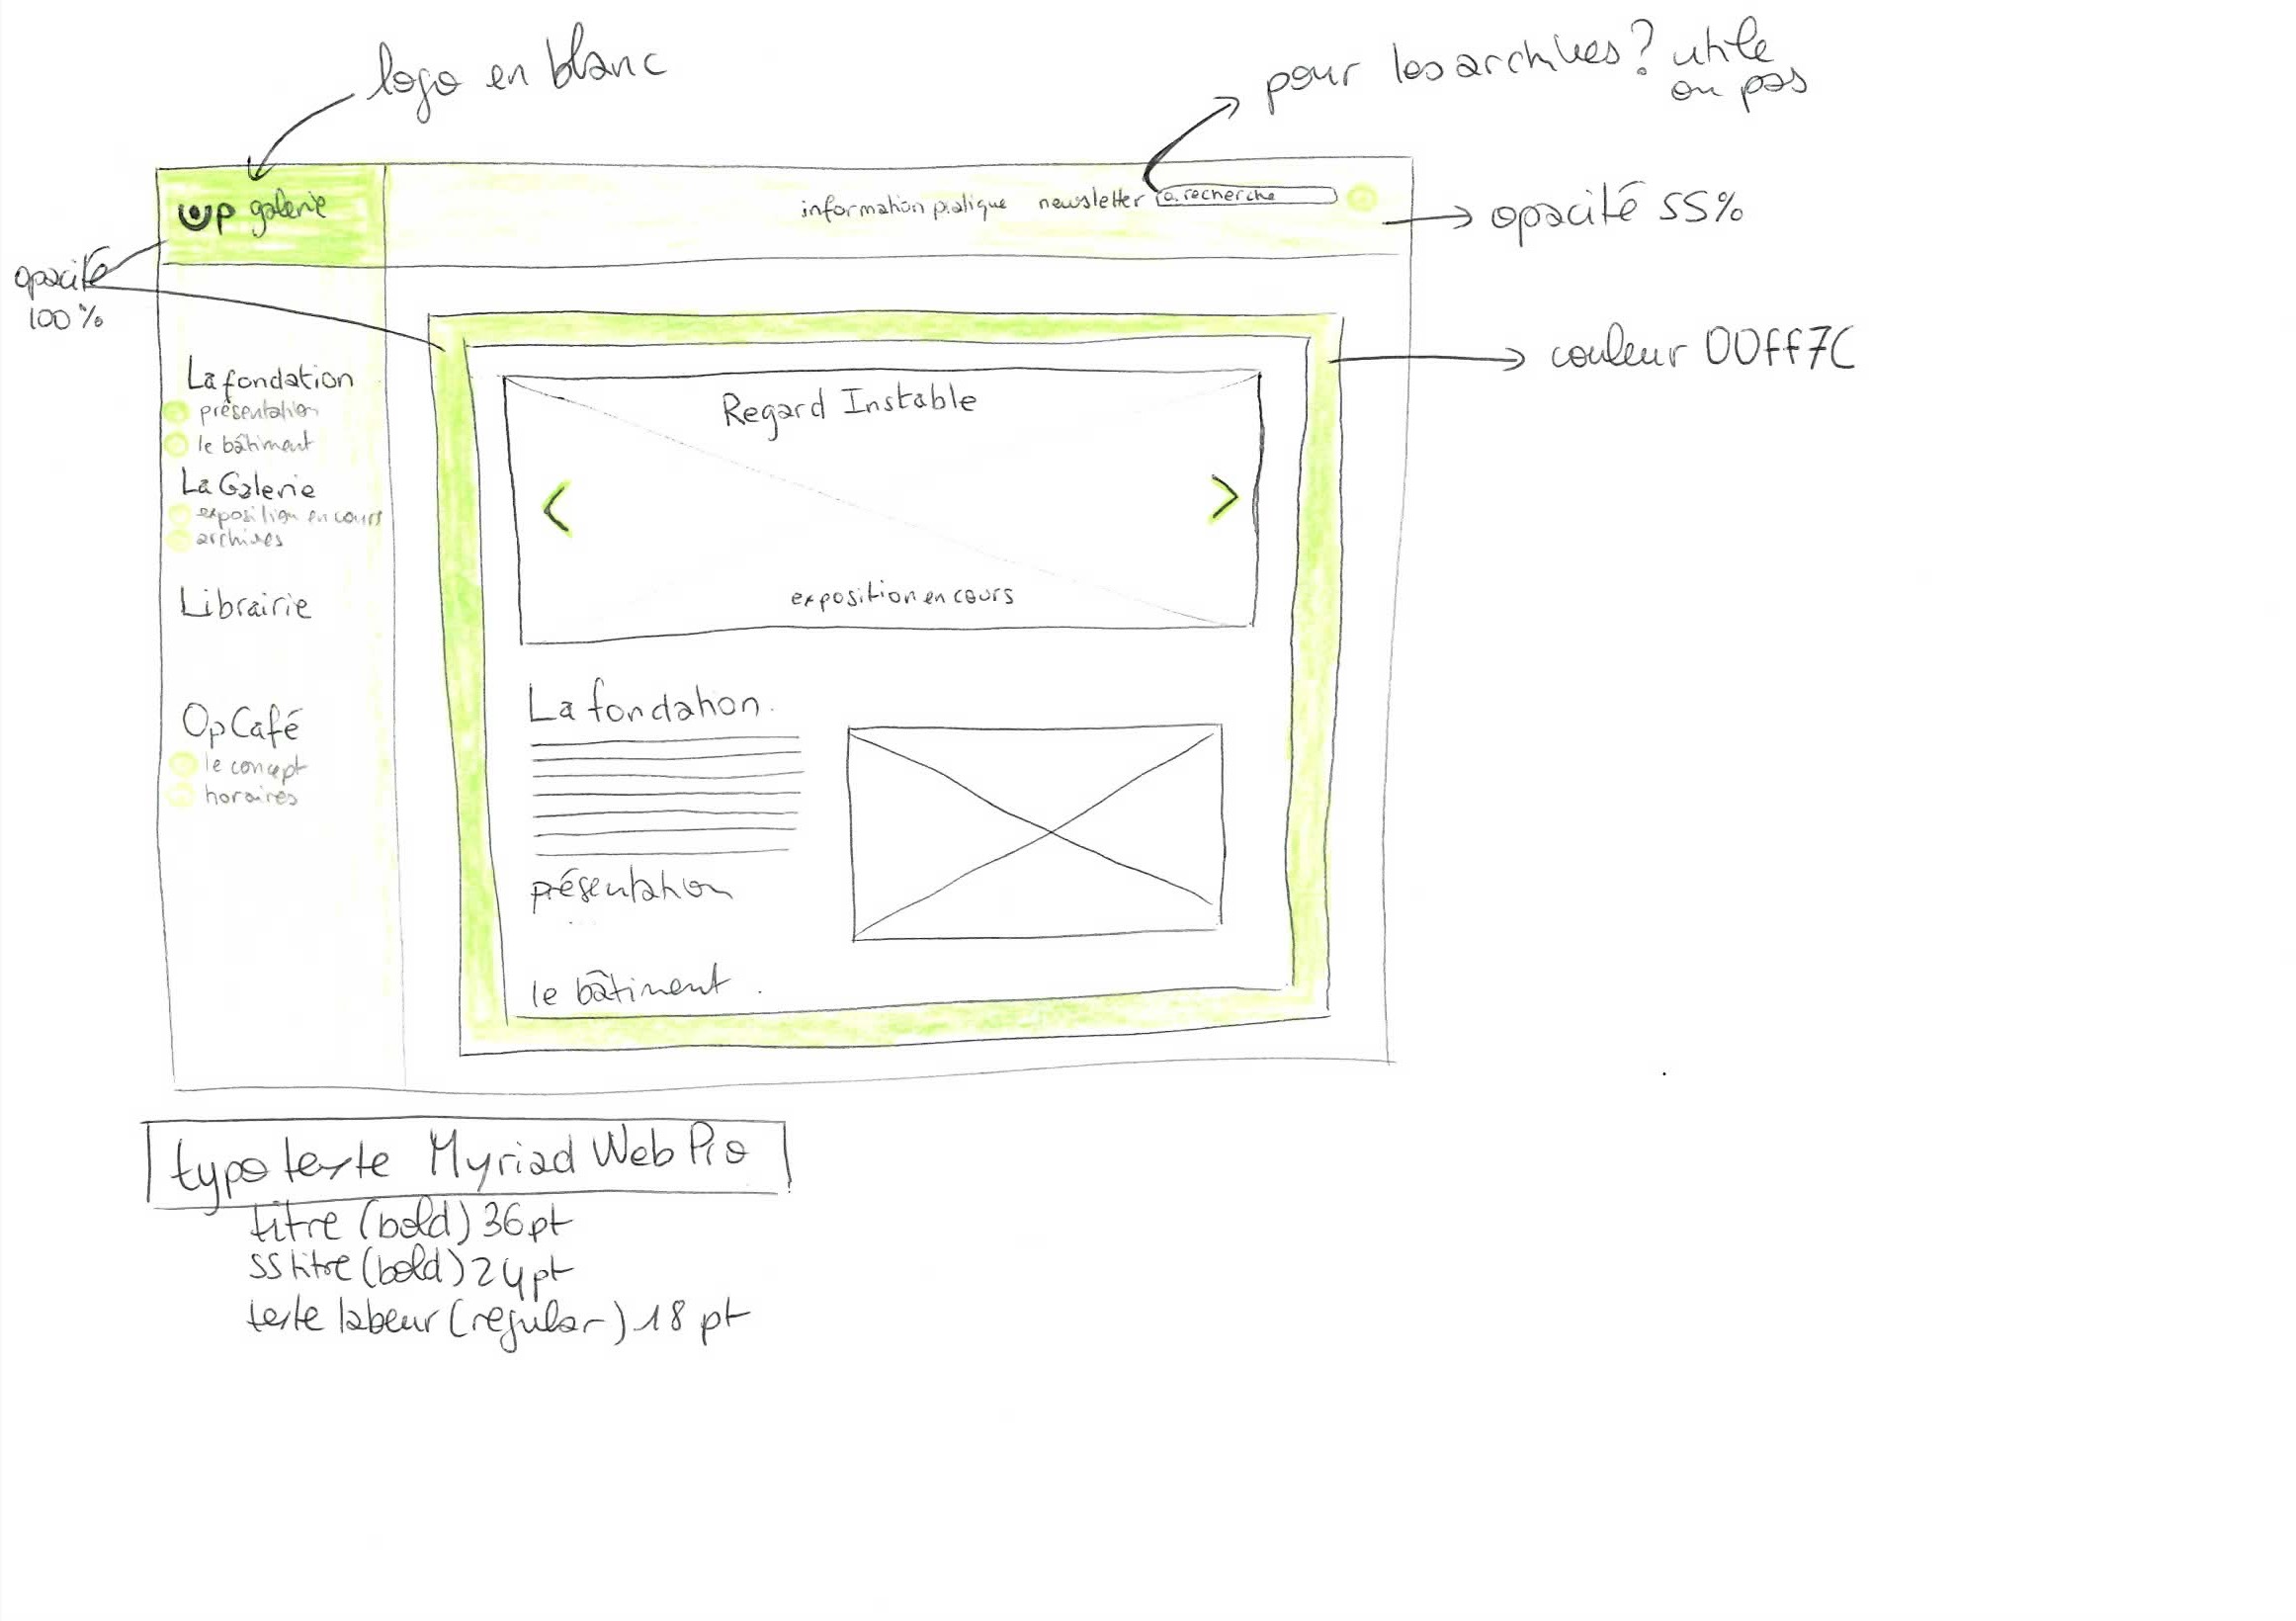 logo en blanc
pour les archives? utile
ou pas
up galerie
information pratique newsletter recherche
opacité 55%
opacité
100%
couleur 00ff7C
La fondation
présentation
le bâtiment
La Galerie
exposition en cours
archives
Librairie
Op Café
le concept
horaires
Regard Instable
< >
exposition en cours
La fondation.
présentation
le bâtiment.
typo texte Myriad Web Pro
titre (bold) 36pt
ss titre (bold) 24pt
texte labeur (regular) 18 pt